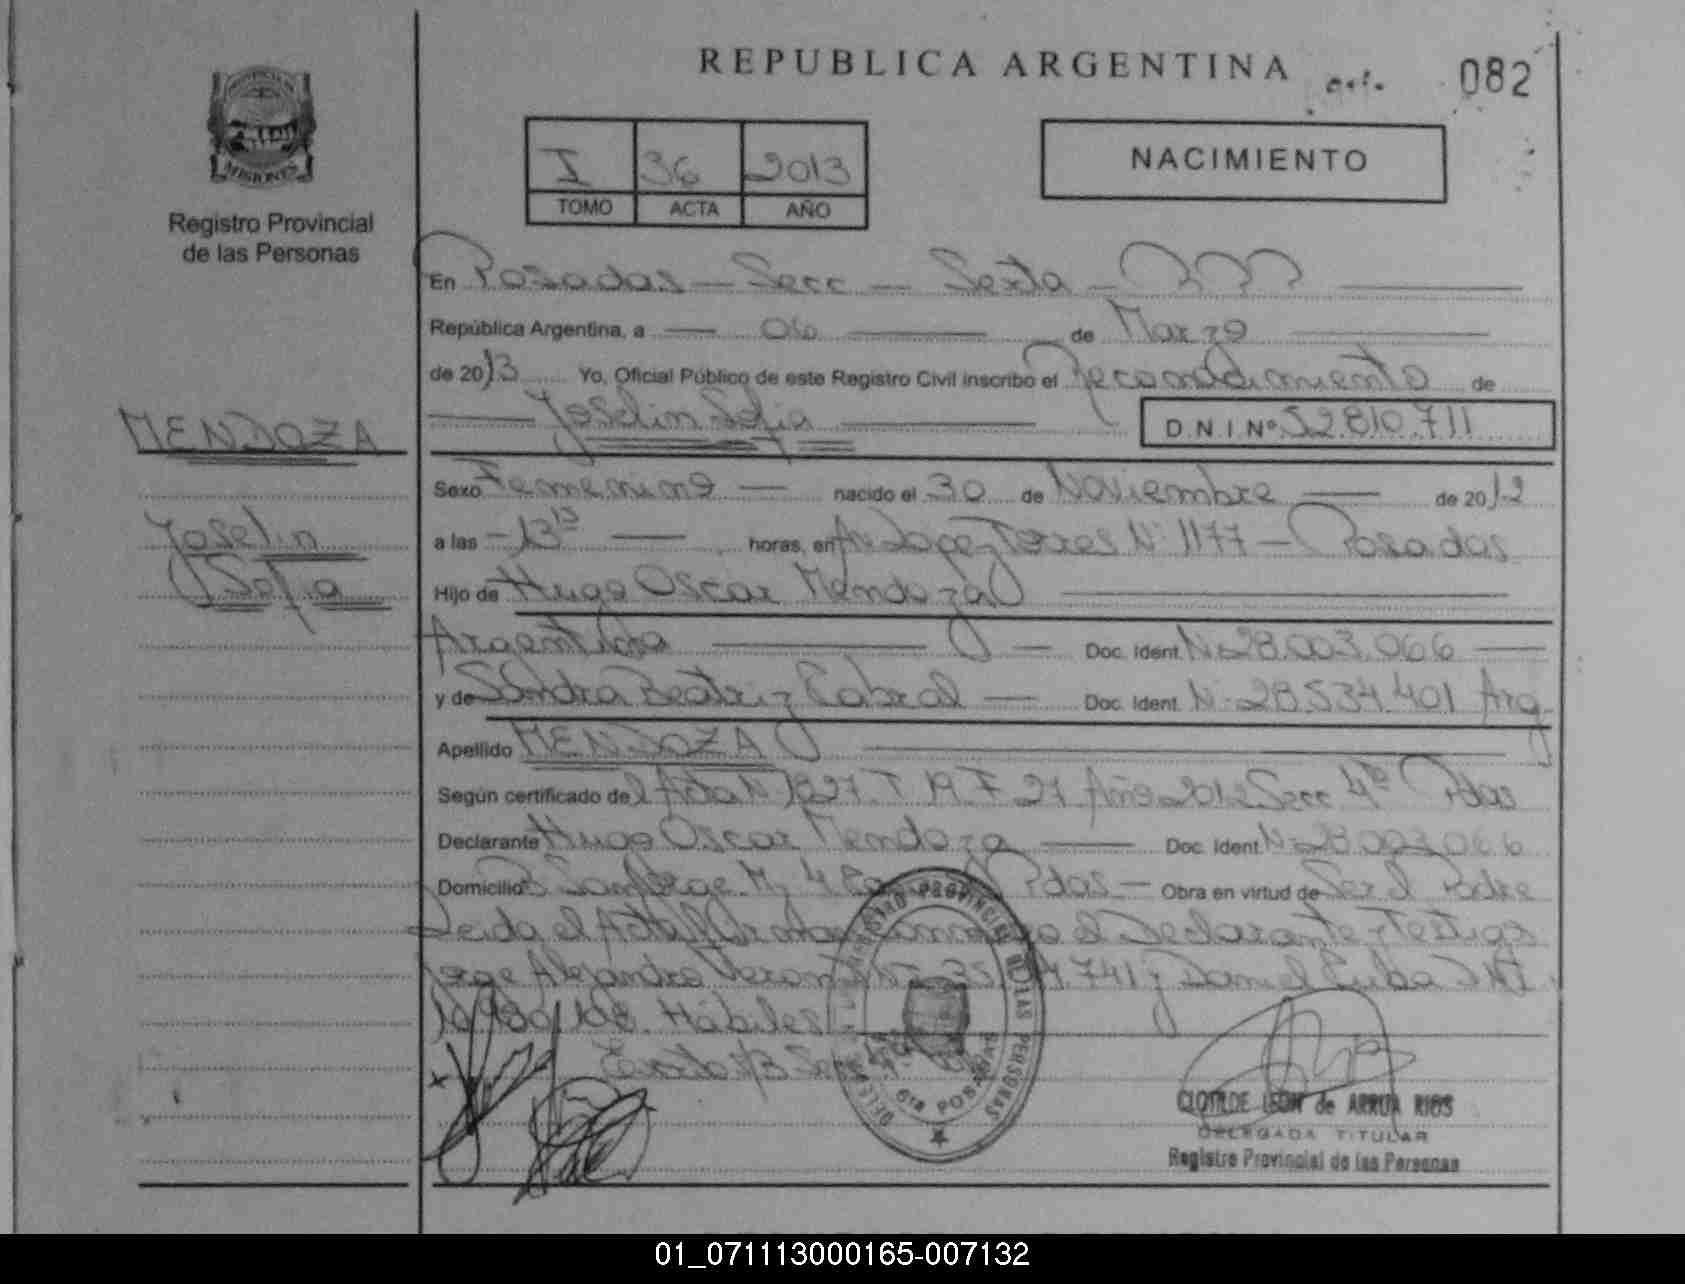 REPUBLICA ARGENTINA
082
PROVINCIA DE
MISIONES
Registro Provincial
de las Personas
I 36 2013
TOMO ACTA AÑO
NACIMIENTO
En Posadas — Secc — Sexta —
República Argentina, a — 06 — de Marzo —
de 2013 Yo, Oficial Público de este Registro Civil inscribo el Reconocimiento de
— Joselin Sofia —
D.N.I.Nº 52.810.711
MENDOZA
Joselin
Sofia
Sexo Femenino — nacido el 30 de Noviembre — de 2012
a las — 13 15 — horas, en Av Lopez Torres Nº 1177 — Posadas
Hijo de Hugo Oscar Mendoza —
Argentino — Doc. Ident. Nº 28.003.066 —
y de Sandra Beatriz Cabral — Doc. Ident. Nº 28.534.401 Arg
Apellido MENDOZA —
Según certificado del Acta Nº 1827 T. F. 27 Año 2012 Secc 4ta Pdas
Declarante Hugo Oscar Mendoza — Doc. Ident. Nº 28.003.066
Domicilio Pdas — Obra en virtud de Ser el Padre
Leida el Acta el Declarante y Testigos
Jorge Alejandro y Daniel
Habiles
REGISTRO PROVINCIAL DE LAS PERSONAS
6ta POSADAS
CLOTILDE LEON de ARRUA RIOS
DELEGADA TITULAR
Registro Provincial de las Personas
01_071113000165-007132